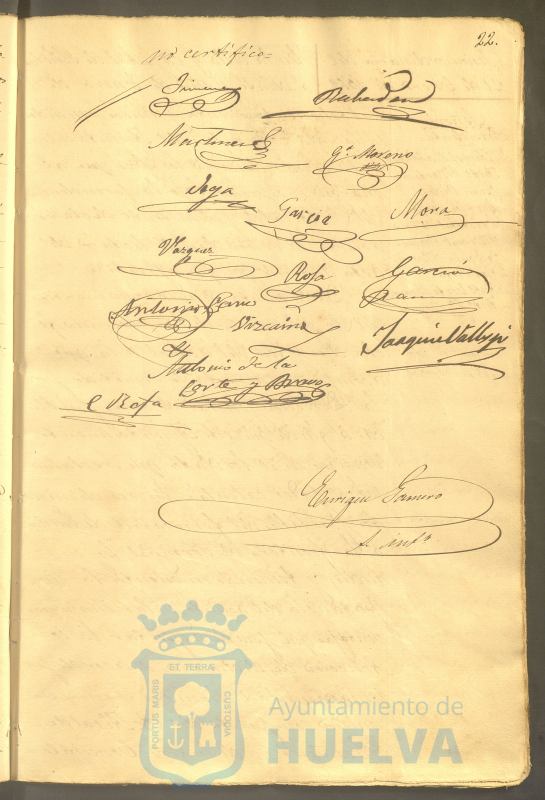 22.
no certifico=
Jimenez
Mactinez
Gª Moreno
Joya
Garcia
Mora
Vazquez
Rosa
Garcia
Antonio Cano
Vizcaino
Joaquin Vallejo
Antonio de la
Corte y Bravo
C Rosa
Enrique
ET TERRÆ
PORTUS MARIS
CUSTODIA
Ayuntamiento de
HUELVA